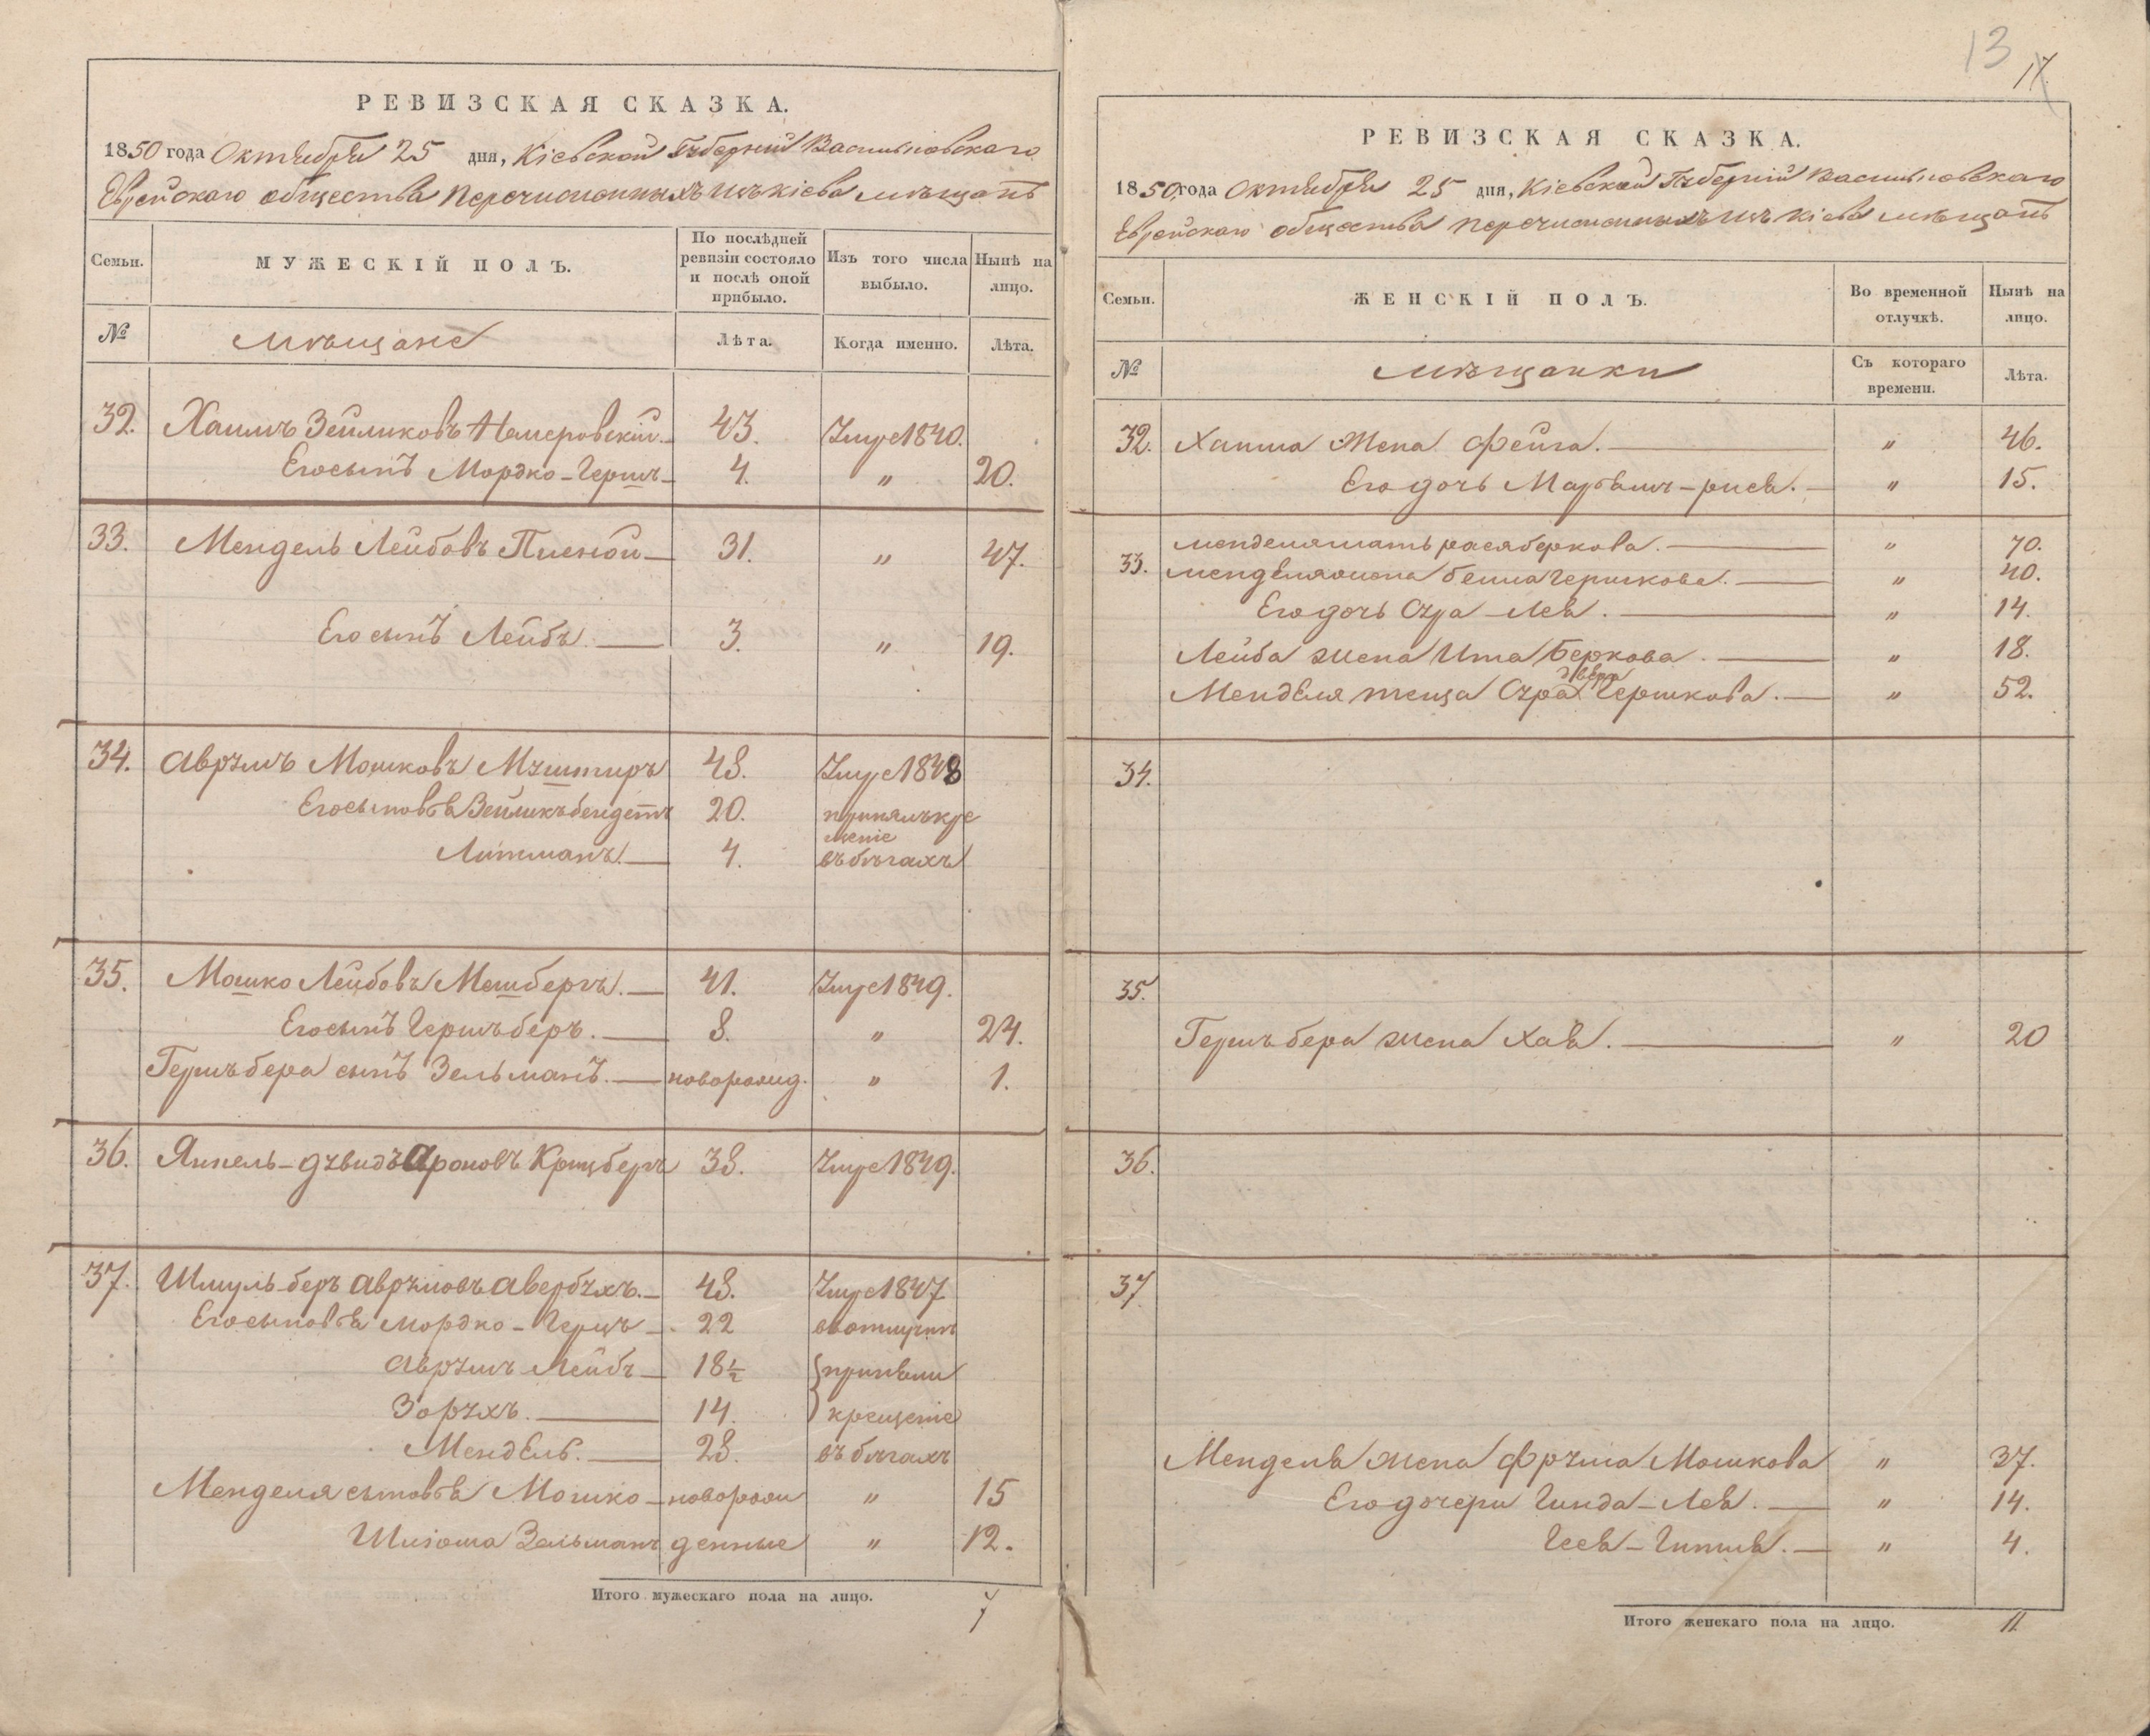 РЕВИЗСКАЯ СКАЗКА.
1850 года Октября 25 дня, Кіевской Губерніи Васильковскаго
Еврейскаго общества перечисленныхъ изъ Кіева мѣщанъ
Семьи.
МУЖЕСКІЙ ПОЛЪ.
По послѣдней ревизіи состояло и послѣ оной прибыло.
Изъ того числа выбыло.
Нынѣ на лицо.
№
мѣщане
Лѣта.
Когда именно.
Лѣта.
32. Хаимъ Зейликовъ Немеровскій. 43. Умре 1840.
Его сынъ Мордко-Гершъ 4. " 20.
33. Мендель Лейбовъ 31. " 47.
Его сынъ Лейбъ 3. " 19.
34. Аврумъ Мошковъ Муштиръ 48. Умре 1848
Его сыновья Зейликъ бендетъ 20. принялъ кре
щеніе
Литманъ. 4. въ бѣгахъ
35. Мошко Лейбовъ Мешбергъ. 41. Умре 1849.
Его сынъ Гершъ беръ. 8. " 24.
Гершъ бера сынъ Зельманъ. новорожд. " 1.
36. Янкель-дувидъ Ароновъ Крицбергъ 38. Умре 1849.
37. Шмуль-беръ Аврумовъ Авербухъ. 48. Умре 1847
Его сыновья Мордко-Герцъ 22
Аврумъ Лейбъ 18½ приняли
Зорухъ. 14. крещеніе
Мендель. 28. въ бѣгахъ
Менделя сыновья Мошко новорож " 15
Шлiома Зельманъ денные " 12.
Итого мужескаго пола на лицо. 7
13
17
РЕВИЗСКАЯ СКАЗКА.
1850 года Октября 25 дня, Кіевской Губерніи Васильковскаго
Еврейскаго общества перечисленныхъ изъ Кіева мѣщанъ
Семьи.
ЖЕНСКІЙ ПОЛЪ.
Во временной отлучкѣ.
Нынѣ на лицо.
№
мѣщанки
Съ котораго времени.
Лѣта.
32. Хаима жена Фейга. " 46.
Его дочь " 15.
33. Менделя мать рася беркова. " 70.
Менделя жена бейла Гершкова. " 40.
Его дочь Сура-Лея. " 14.
Лейба жена Ита Беркова. " 18.
двера
Менделя теща Сура Гершкова. " 52.
34.
35.
Гершъ бера жена Хая. " 20
36.
37
Менделя жена Фрума Мошкова " 37.
Его дочери Гинда-Лея. " 14.
" 4.
Итого женскаго пола на лицо. 11